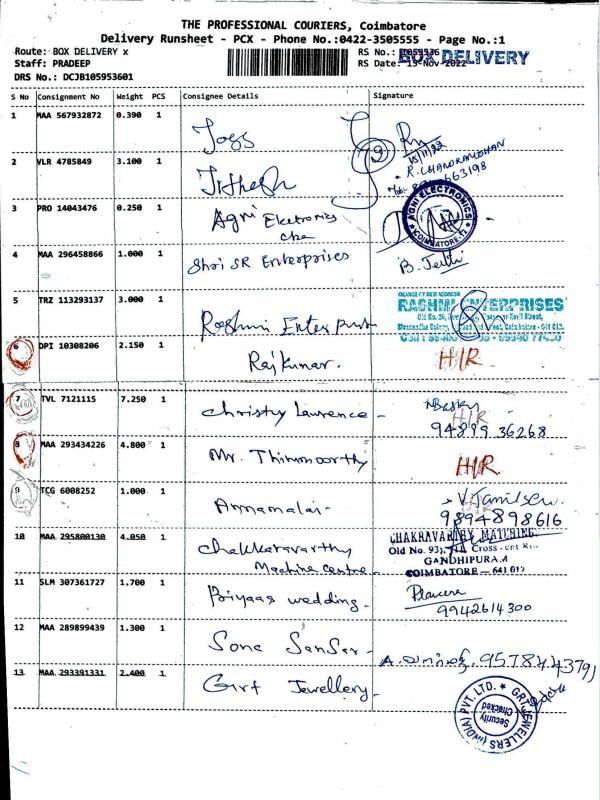 THE PROFESSIONAL COURIERS, Coimbatore
Delivery Runsheet - PCX - Phone No.:0422-3505555 - Page No.:1
Route: BOX DELIVERY x
Staff: PRADEEP
DRS No.: DCJB105953601
RS No.:
RS Date: 15-Nov-2022
BOX DELIVERY
S No Consignment No Weight PCS Consignee Details Signature
1 MAA 567932872 0.390 1
15/11/22
R. CHANDRAMOHAN
2 VLR 4785849 3.100 1 Jithesh
3 PRO 14043476 0.250 1 Agni Electronics
Cbe
AGNI ELECTRONICS
COIMBATORE-12
4 MAA 296458866 1.000 1 Shri SR Enterprises
CHANGE OF NEW ADDRESS
5 TRZ 113293137 3.000 1 Rashmi Enter
RASHMI ENTERPRISES
6 DPI 10308206 2.150 1 Rajkumar. H/R
7 TVL 7121115 7.250 1 Christy Lawrence -
H/R
94899 36268
8 MAA 293434226 4.800 1 Mr. Thirumoorthy H/R
9 TCG 6008252 1.000 1 Annamalai -
9894898616
10 MAA 295800130 4.050 1 Chakkaravarthy
Machine centre -
CHAKRAVARTHY MATCHING
Old No. 93),
GANDHIPURAM
COIMBATORE - 641 012
11 SLM 307361727 1.700 1 Biyaas wedding -
9942614300
12 MAA 289899439 1.300 1 Sona SanSar -
13 MAA 293391331 2.400 1 Girt Jewellery -
GRT JEWELLERS (INDIA) PVT. LTD.
Security
Checked